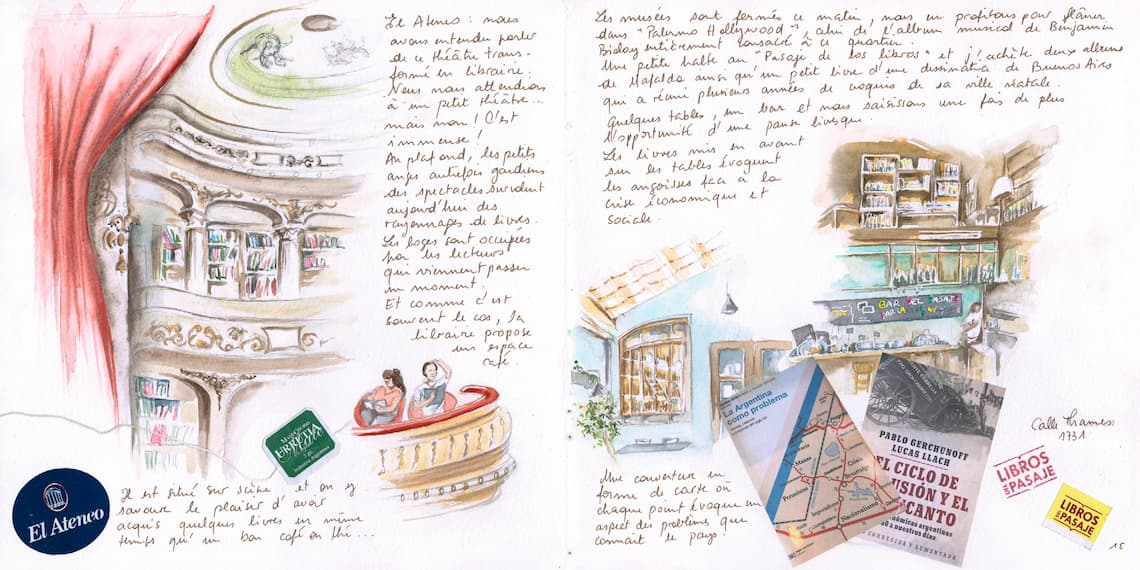 El Ateneo : nous
avons entendu parler
de ce théâtre trans-
formé en librairie.
Nous nous attendions
à un petit théâtre...
mais non ! C'est
immense !
Au plafond, les petits
anges autrefois gardiens
des spectacles survolent
aujourd'hui des
rayonnages de livres.
Les loges sont occupées
par les lecteurs
qui viennent passer
un moment.
Et comme c'est
souvent le cas, la
librairie propose
un espace
café.
Il est situé sur scène, et on y
savoure le plaisir d'avoir
acquis quelques livres en même
temps qu'un bon café en thé...
El Ateneo
Industria Argentina
Les musées sont fermés ce matin, nous en profitons pour flâner
dans "Palermo Hollywood", celui de l'album musical de Benjamin
Biolay entièrement consacré à ce quartier.
Une petite halte au "Pasaje de los libros" et j'achète deux albums
de Mafalda ainsi qu'un petit livre d'une dessinatrice de Buenos Aires
qui a réuni plusieurs années de croquis de sa ville natale.
Quelques tables, un bar et nous saisissons une fois de plus
l'opportunité d'une pause livresque.
Les livres mis en avant
sur les tables évoquent
les angoisses face à la
crise économique et
sociale.
BAR DEL PASAJE
Une couverture en
forme de carte où
chaque point évoque un
aspect des problèmes que
connaît le pays !
La Argentina
como problema
Masas
Peronismo
Nacionalismo
PABLO GERCHUNOFF
LUCAS LLACH
EL CICLO DE
USIÓN Y EL
CANTO
ómicas argentinas
a nuestros días
CORREGIDA Y AUMENTADA
Calle Thames
1731
LIBROS
DEL PASAJE
LIBROS
DEL PASAJE
15